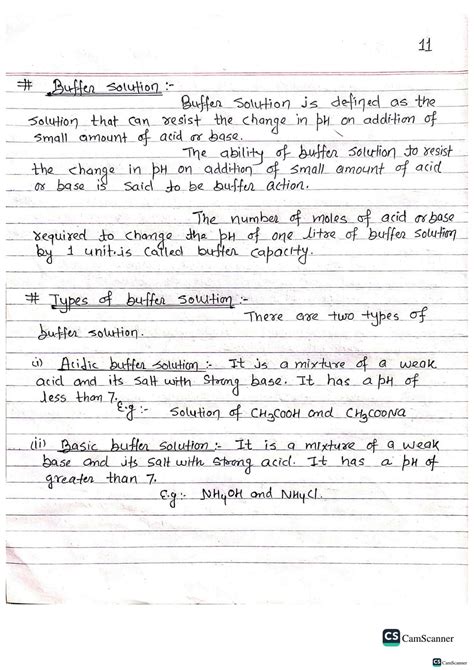 11
# Buffer solution :-
Buffer solution is defined as the
solution that can resist the change in pH on addition of
small amount of acid or base.
The ability of buffer solution to resist
the change in pH on addition of small amount of acid
or base is said to be buffer action.
The number of moles of acid or base
required to change the pH of one litre of buffer solution
by 1 unit.is called buffer capacity.
# Types of buffer solution :-
There are two types of
buffer solution.
(i) Acidic buffer solution :- It is a mixture of a weak
acid and its salt with strong base. It has a pH of
less than 7.
E.g :- Solution of CH3COOH and CH3COONa
(ii) Basic buffer solution :- It is a mixture of a weak
base and its salt with strong acid. It has a pH of
greater than 7.
E.g:- NH4OH and NH4Cl.
CS CamScanner
CS CamScanner